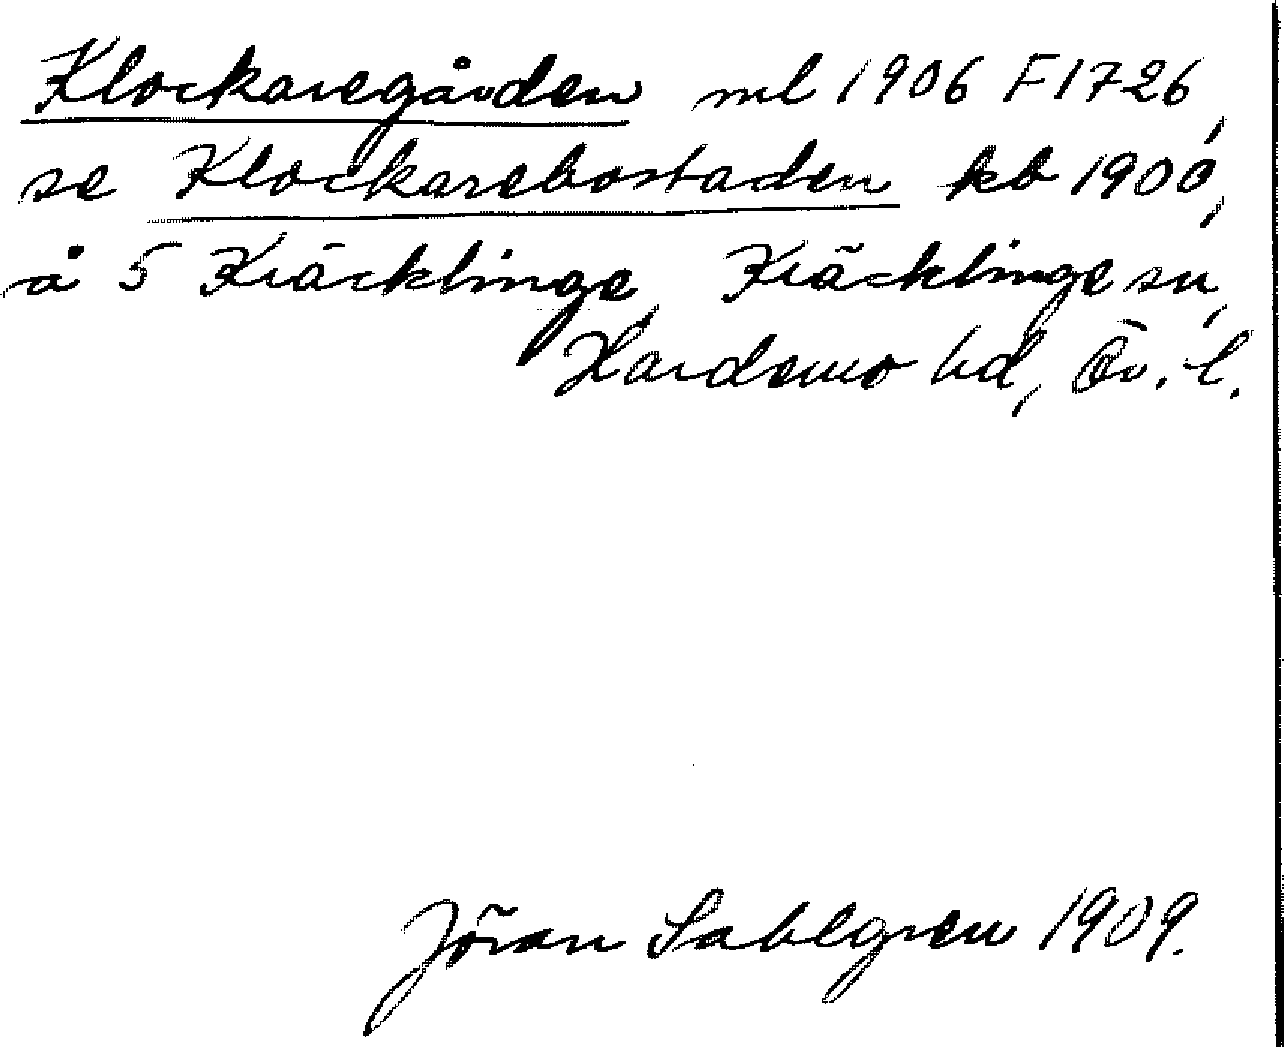 Klockaregården ml 1906 F1726,
se Klockarebostaden kb 1900,
å 5 Kräcklinge, Kräcklinge sn,
Hardemo hd, Ör. l.
Jöran Sahlgren 1909.